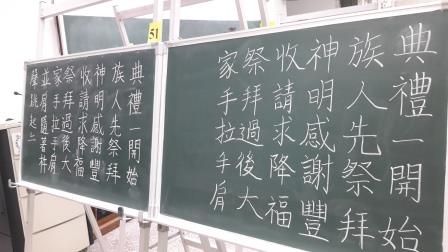 51
典禮一開始
族人先祭拜
神明感謝豐
收請求降福
祭拜過後大
家手拉手肩
典禮一開始
族人先祭拜
神明感謝豐
收請求降福
祭拜過後大
家手拉手肩
並肩隨著杵
聲跳起